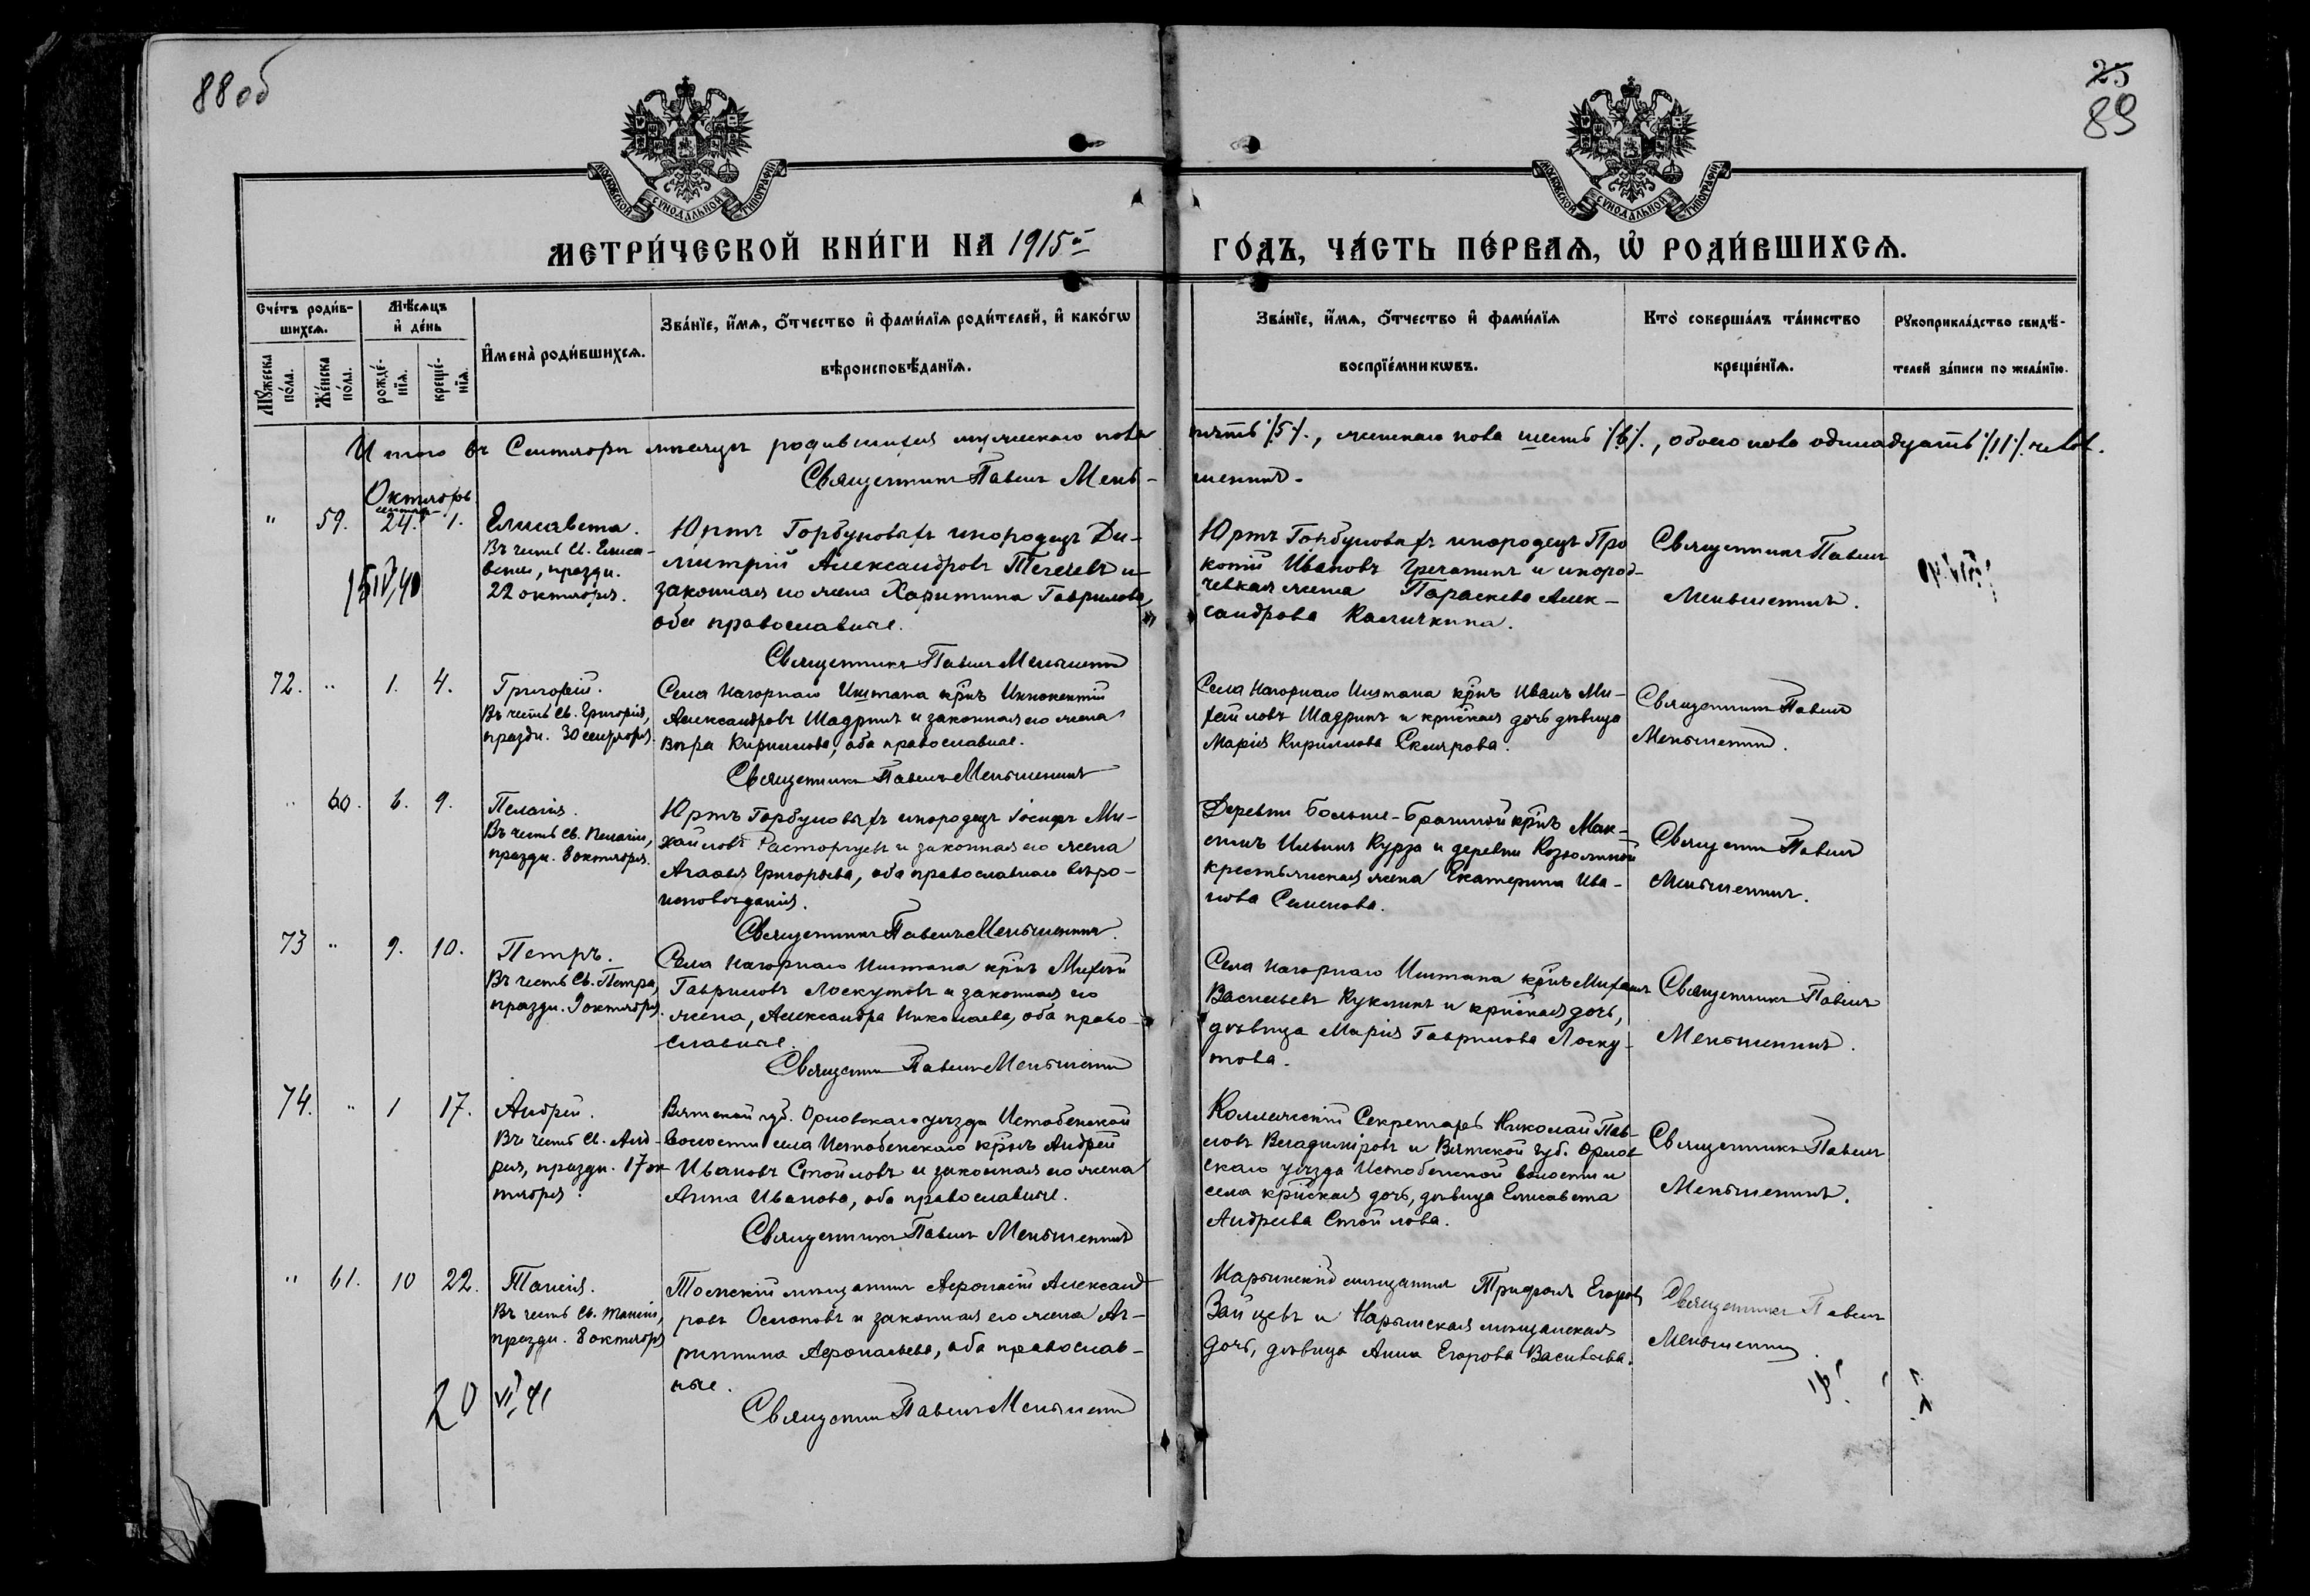 88 об
25
89
МОСКОВСКОЙ СѴНОДАЛЬНОЙ ТИПОГРАФІИ
МОСКОВСКОЙ СѴНОДАЛЬНОЙ ТИПОГРАФІИ
МЕТРИ́ЧЕСКОЙ КНИ́ГИ НА 1915й
ГО́ДЪ, ЧА́СТЬ ПЕ́РВАѦ, Ѽ РОДИ́ВШИХСѦ.
Сче́тъ роди́в-
шихсѧ.
Мꙋ́жеска
по́ла.
Же́нска
по́ла.
Мѣ́сѧцъ
и҆ де́нь
рожде́-
нїѧ.
креще́-
нїѧ.
И҆мена̀ роди́вшихсѧ.
Зва́нїе, и҆́мѧ, ѻ҆́тчество и҆ фами́лїѧ роди́телей, и҆ како́гѡ
вѣроисповѣ́данїѧ.
Зва́нїе, и҆́мѧ, ѻ҆́тчество и҆ фами́лїѧ
воспрїе́мникѡвъ.
Кто̀ соверша́лъ та́инство
креще́нїѧ.
Рꙋкоприкла́дство свидѣ́-
телей за́писи по жела́нїю.
Итого въ Сентябрѣ мѣсяцѣ родившихся мужескаго пола пять /5/., женскаго пола шесть /6/., обоего пола одинадцать /11/. челов.
Священникъ Павелъ Мень-
шенинъ.
Октябрь
" 59. 24. 1.
Елисавета.
Въ честь Св. Елиса-
веты, праздн.
22 октября.
15 IV 40
Юртъ Горбуновыхъ инородецъ Ди-
митрій Александровъ Тегечевъ и
законная его жена Харитина Гаврилова,
оба православные.
Священникъ Павелъ Меньшенинъ
Юртъ Горбуновыхъ инородецъ Про
копій Ивановъ и инород-
жена Параскева Алек-
сандрова Каличкина.
Священникъ Павелъ
Меньшенинъ.
72. " 1. 4.
Григорій.
Въ честь Св. Григорія,
праздн. 30 сентября.
Села Нагорнаго Иштана кр-нъ Иннокентій
Александровъ Шадринъ и законная его жена
Вѣра Кириллова, оба православные.
Священникъ Павелъ Меньшенинъ
Села Нагорнаго Иштана кр-нъ Иванъ Ми-
хайловъ Шадринъ и кр-нская дочь дѣвица
Марія Кириллова Склярова.
Священникъ Павелъ
Меньшенинъ.
" 60. 6. 9.
Пелагія.
Въ честь Св. Пелагіи,
праздн. 8 октября.
Юртъ Горбуновыхъ инородецъ Іосифъ Ми-
хайловъ Расторгуевъ и законная его жена
Агафья Григорьева, оба православнаго вѣро-
исповѣданія.
Священникъ Павелъ Меньшенинъ.
Деревни Больше-Брагиной кр-нъ Мак-
симъ Ильинъ Курза и деревни Козюлиной
крестьянская жена Екатерина Ива-
нова Семенова.
Священникъ Павелъ
Меньшенинъ.
73 " 9. 10.
Петръ.
Въ честь Св. Петра,
праздн. 9 октября.
Села Нагорнаго Иштана кр-нъ
Гавриловъ Лоскутовъ и законная его
жена, Александра Николаева, оба право-
славные.
Священникъ Павелъ Меньшенинъ
Села Нагорнаго Иштана кр-нъ Михаилъ
Васильевъ Куклинъ и кр-нская дочь,
дѣвица Марія Гаврилова Лоску-
това.
Священникъ Павелъ
Меньшенинъ.
74. " 1 17.
Андрей.
Въ честь Св. Анд-
рея, праздн. 17 ок-
тября.
Вятской губ. Орловскаго уѣзда Истобенской
волости села Истобенскаго кр-нъ Андрей
Ивановъ Стойловъ и законная его жена
Анна Иванова, оба православные.
Священникъ Павелъ Меньшенинъ
Коллежскій Секретарь Николай Пав-
ловъ Владиміровъ и Вятской губ. Орлов
скаго уѣзда Истобенской волости и
села кр-нская дочь, дѣвица Елисавета
Андреева Стойлова.
Священникъ Павелъ
Меньшенинъ.
" 61. 10 22.
Таисія.
Въ честь Св. Таисіи,
праздн. 8 октября
20 VI 41
Томскій мѣщанинъ Александ-
ровъ Осиповъ и законная его жена Аг-
риппина, оба православ-
ные.
Священникъ Павелъ Меньшенинъ
Нарымскій мѣщанинъ Трифонъ Егоровъ
Зайцевъ и Нарымская мѣщанская
дочь, дѣвица Анна Егорова Васильева.
Священникъ Павелъ
Меньшенинъ.